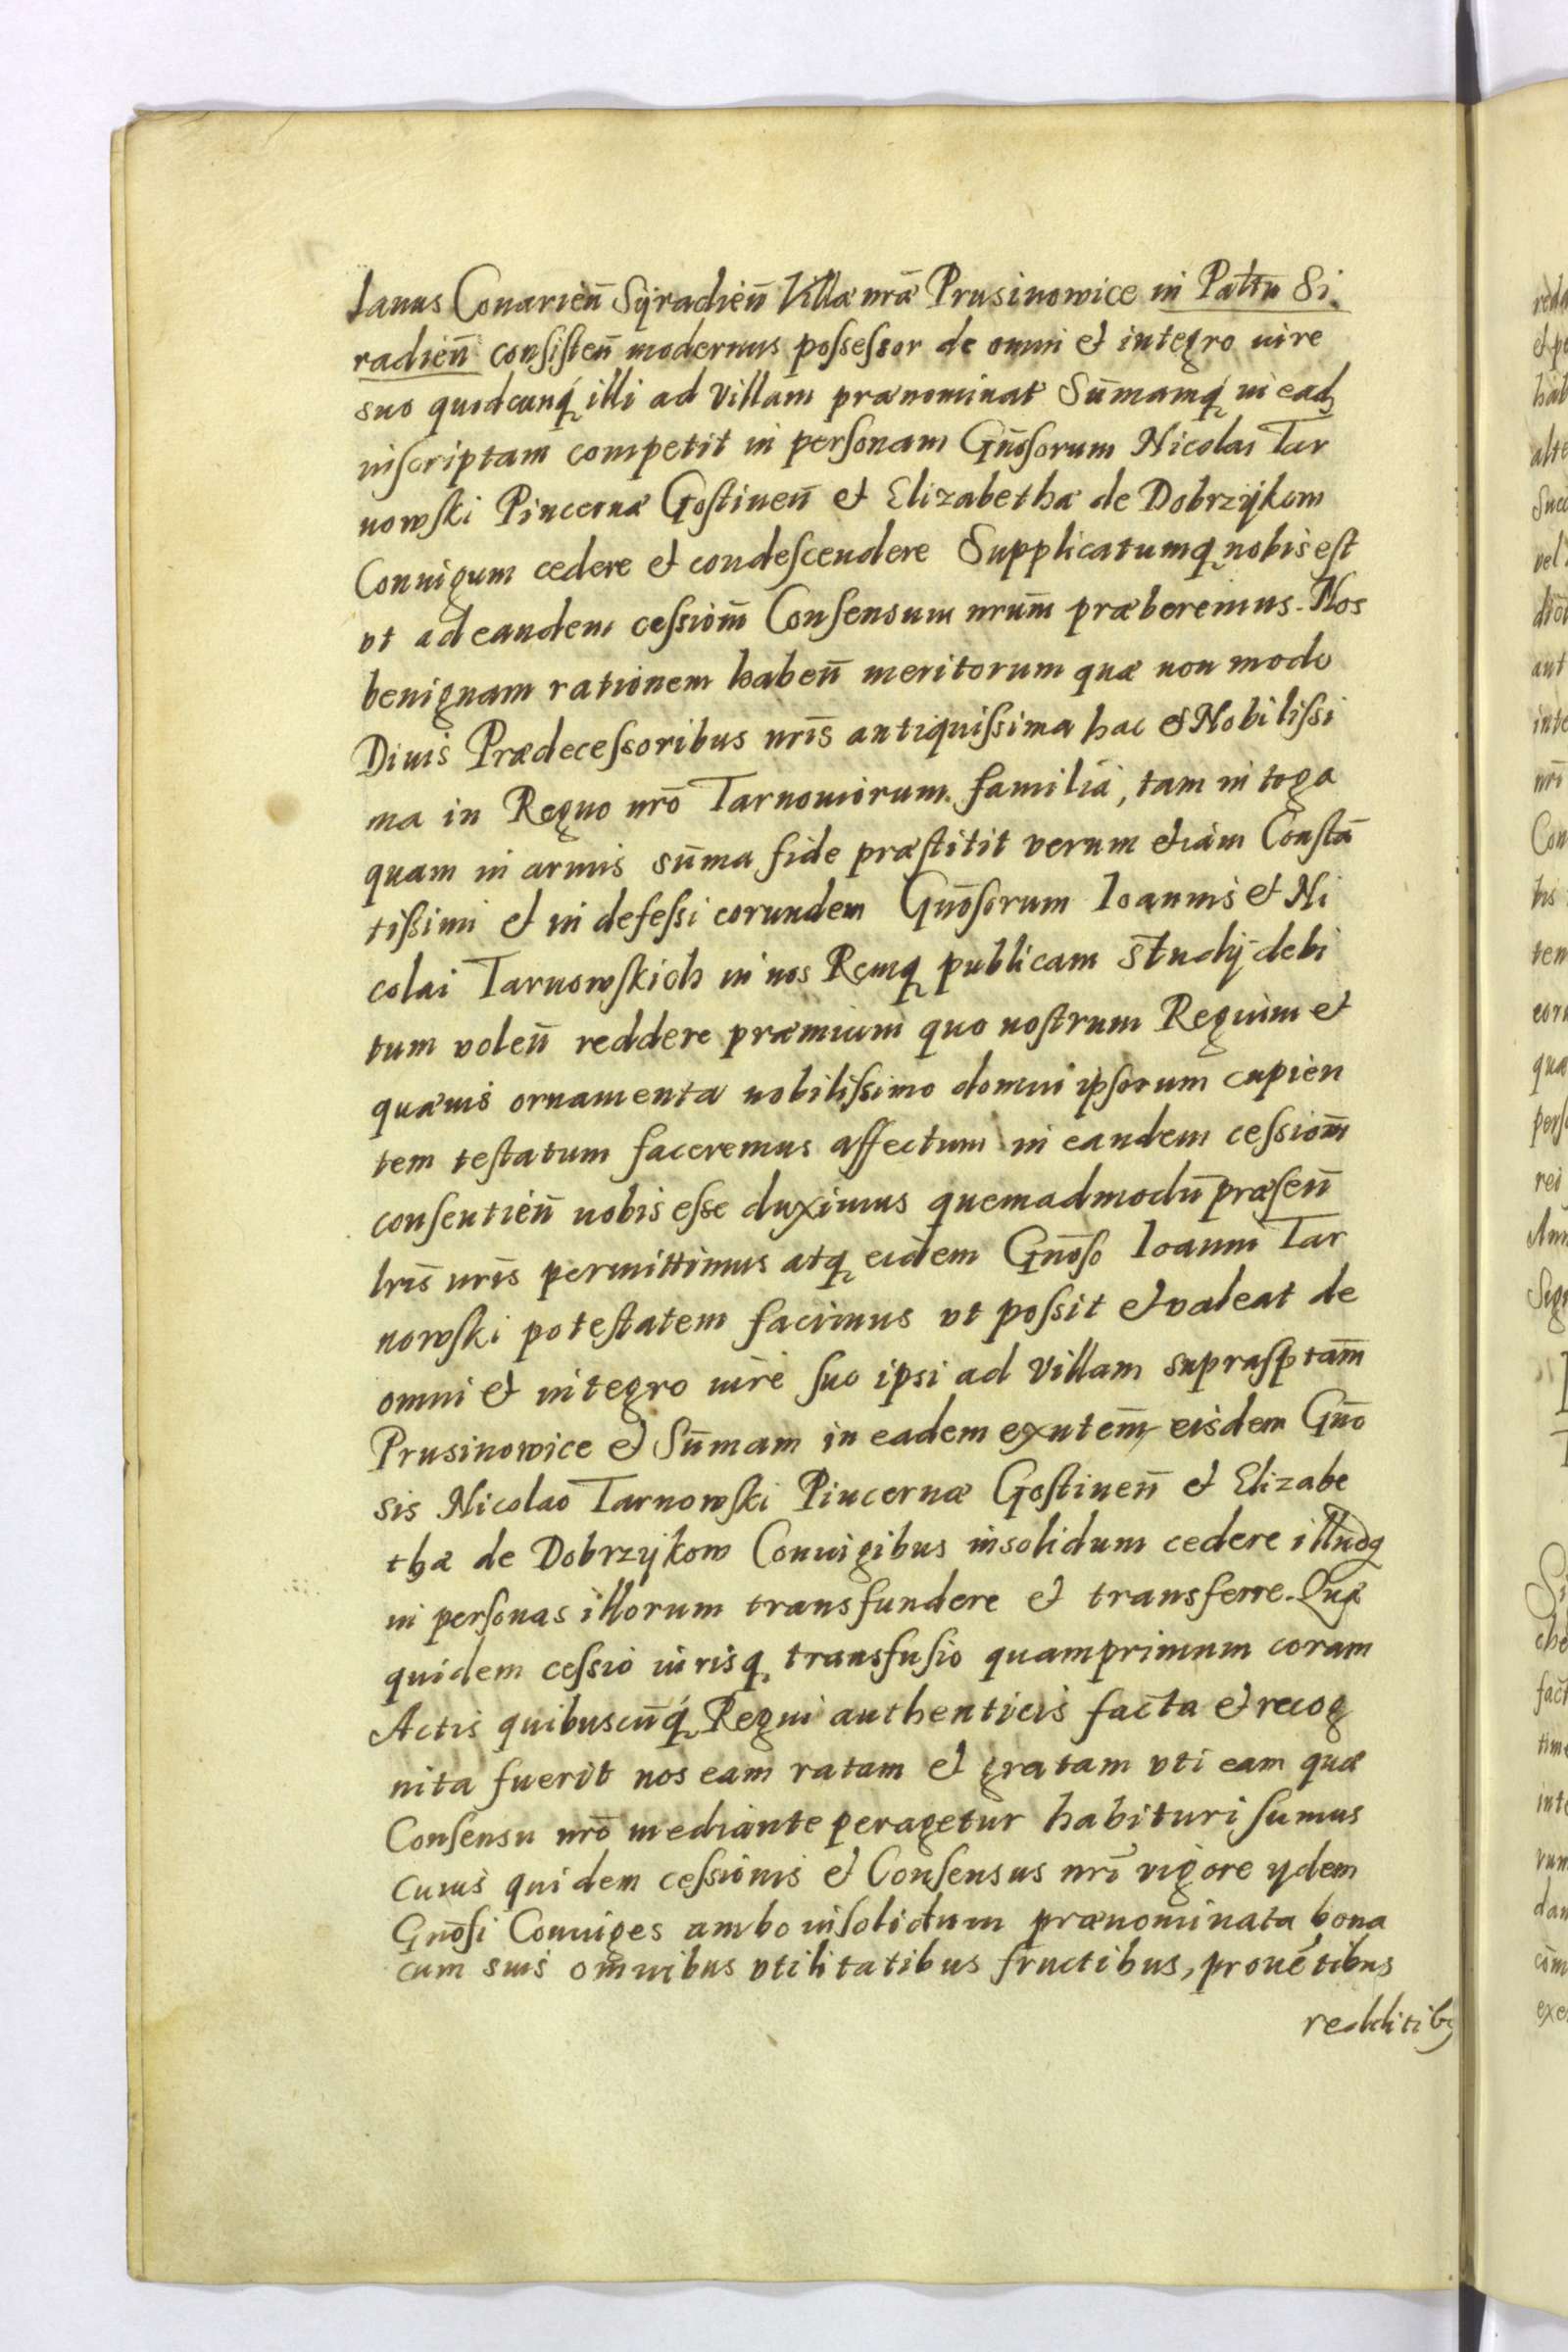 lanus Conarien̄ Syradien̄ Villæ nr̄æ Prusinowice in Palt̄u Si
radien̄ consisten̄ modernus possessor de omni et integro iure
suo quodcunq́ illi ad villam prænominat Sum̄amq́ in eadȝ
inscriptam competit in personam Gn̄osorum Nicolai Tar
nowski Pincernæ Gostinen̄ et Elizabethæ de Dobrzykow
Coniugum cedere et condescendere Supplicatumq̨ nobis est
vt ad eandem cessiom̄ Consensum nrum̄ præberemus. Nos
benignam rationem haben̄ meritorum quæ non modo
Diuis Prædecessoribus nr̄is antiquissima hac et Nobilissi
ma in Regno nr̄o Tarnouiorum familia, tam in toga
quam in armis sum̄a fide præstitit verum etiam Constā
tissimi et indefessi eorundem Gn̄osorum Ioannis et Ni
colai Tarnowskich in nos Remq̨ publicam studij debi
tum volen̄ reddere præmium quo nostrum Regium et
quæuis ornamenta nobilissimo domui ipsorum cupien
tem testatum faceremus affectum in eandem cessiom̄
consentien̄ nobis esse duximus quemadmodū præsen̄
lr̄is nr̄is permittimus atq̨ eidem Gn̄oso Ioanni Tar
nowski potestatem facimus vt possit et valeat de
omni et integro iure suo ipsi ad villam suprasptam̄
Prusinowice et Sum̄am in eadem exntem̄ eisdem Gn̄o
sis Nicolao Tarnowski Pincernæ Gostinen̄ et Elizabe
thæ de Dobrzykow Coniugibus insolidum cedere illudq̨
in personas illorum transfundere et transferre. Quæ
quidem cessio iurisq̨ transfusio quamprimum coram
Actis quibuscūq́ Regni authenticis facta et recog
nita fuerit nos eam ratam et gratam vti eam quæ
Consensu nr̄o mediante peragetur habituri sumus
cuius quidem cessionis et Consensus nr̄i vigore ydem
Gn̄osi Coniuges ambo insolidum prænominata bona
cum suis om̄nibus vtilitatibus fructibus, prouētibus
redditibȝ